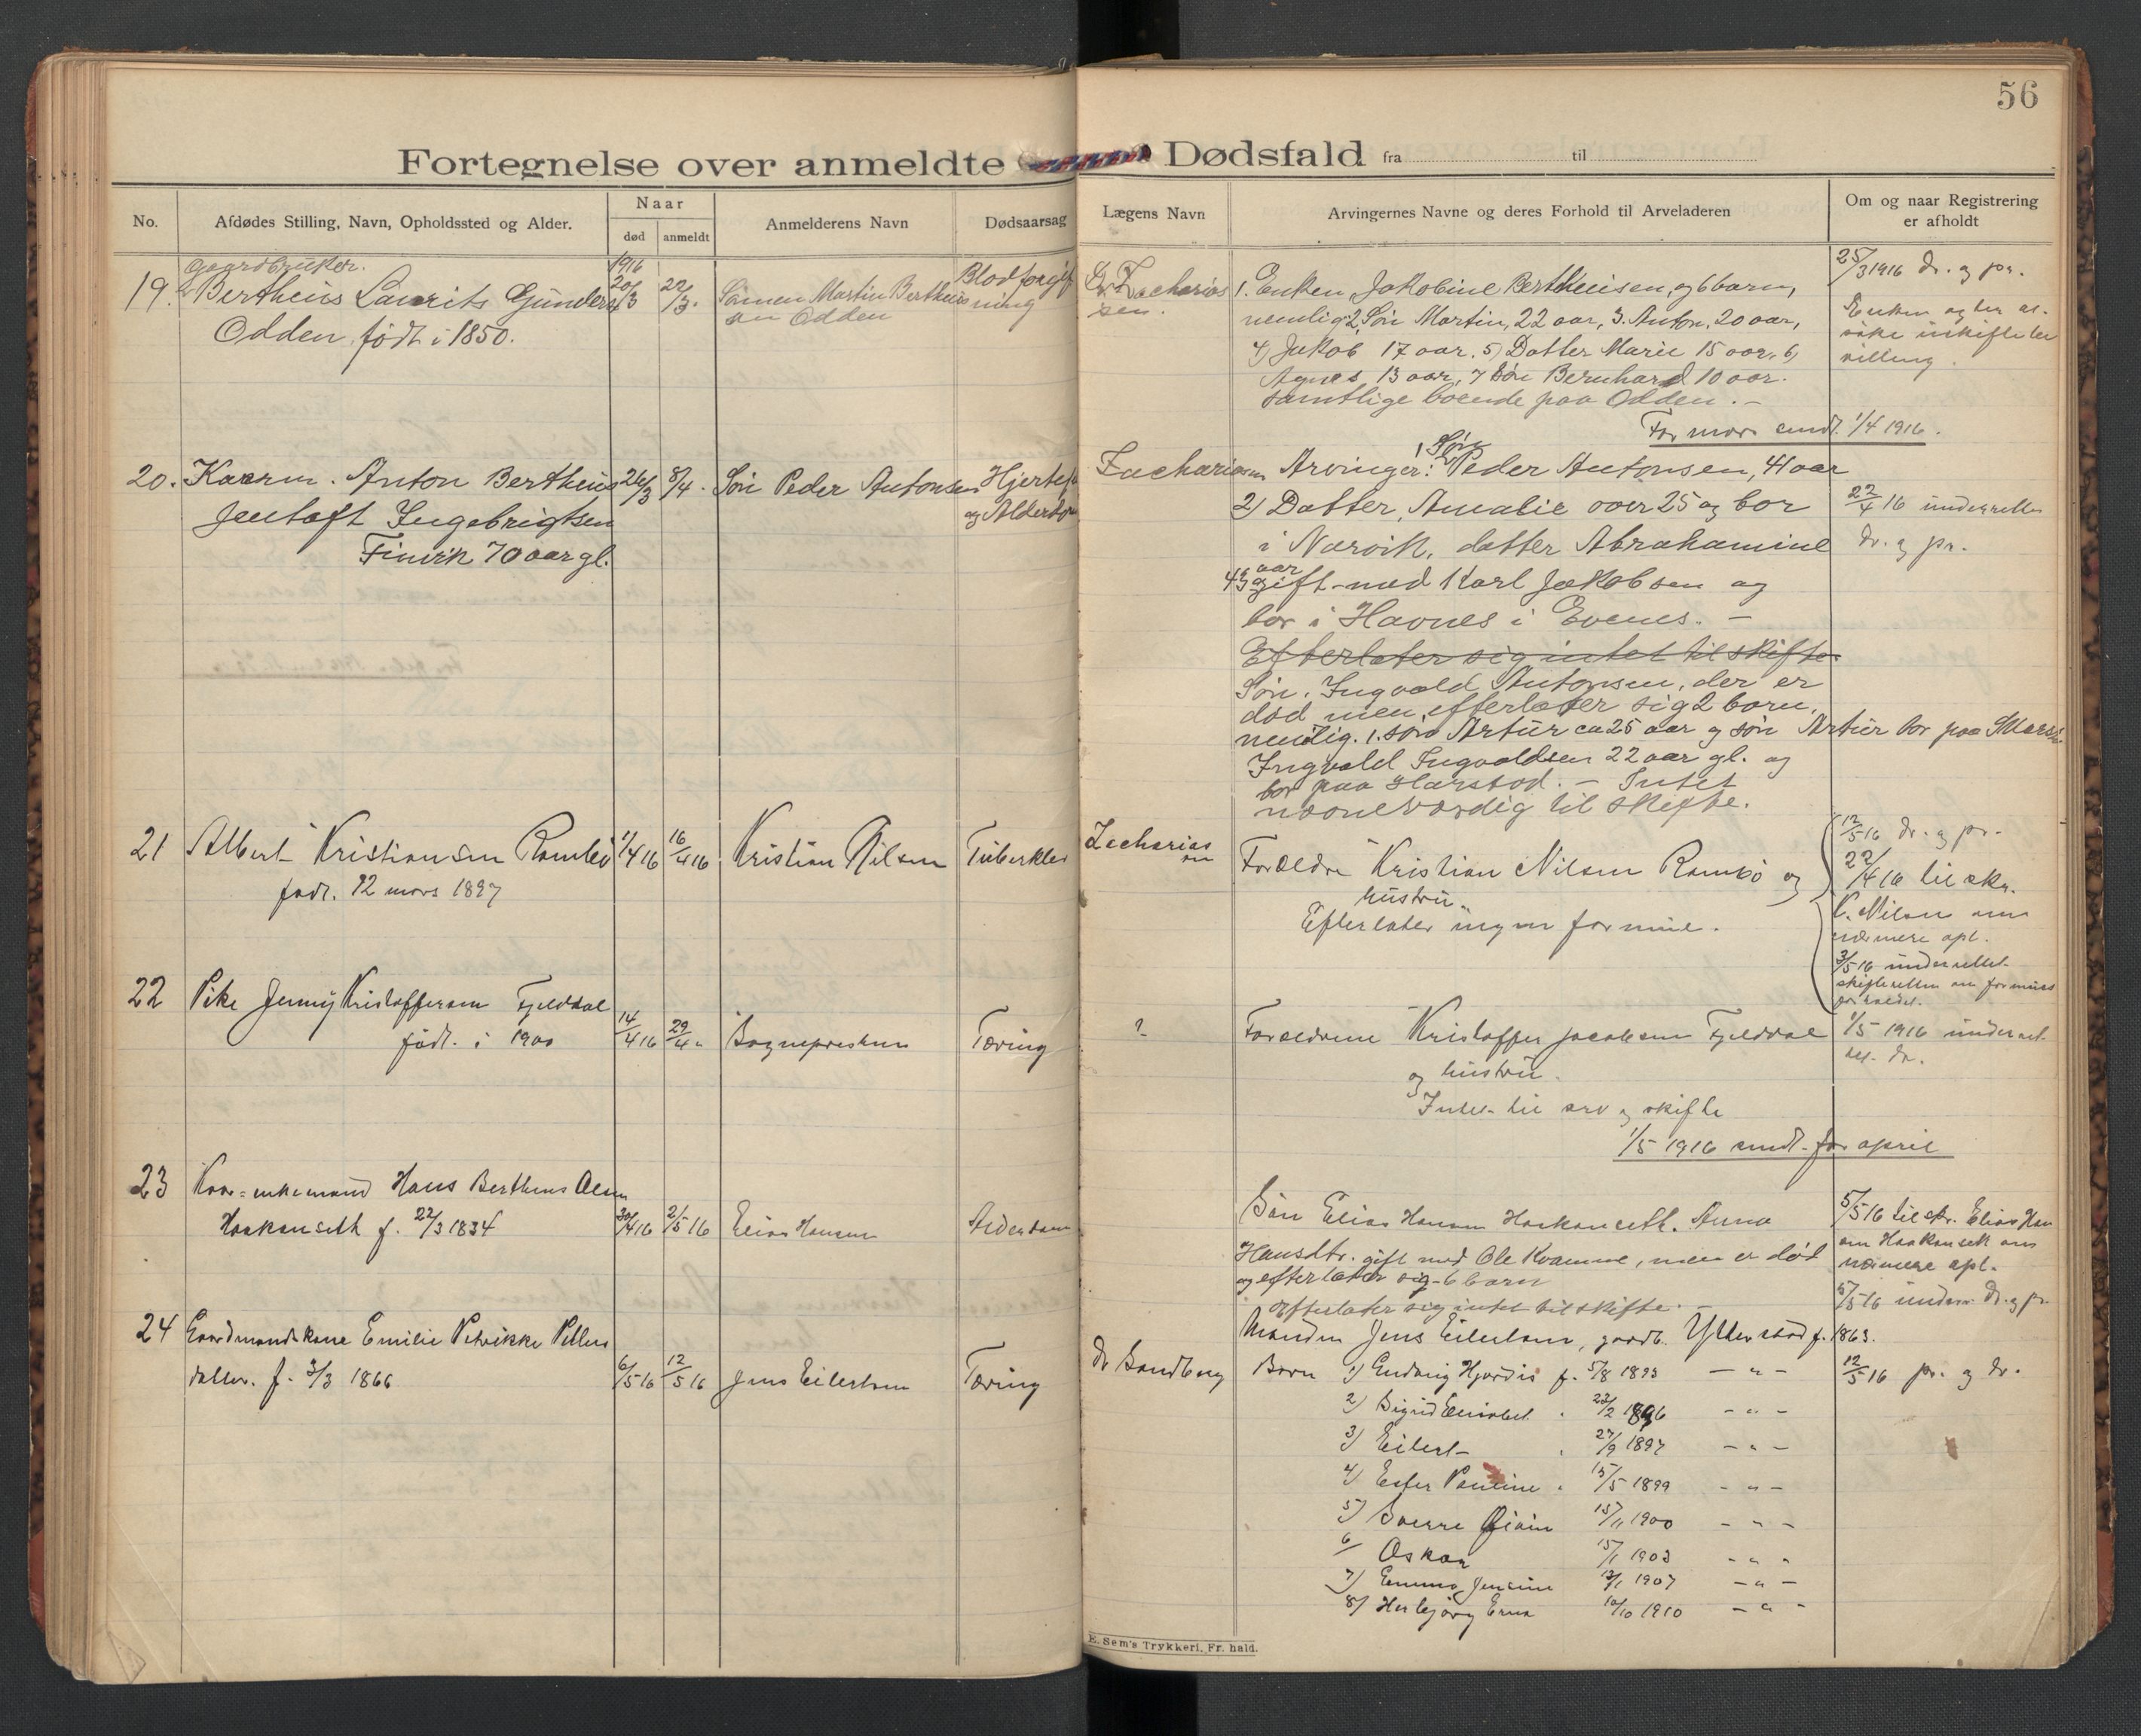 56
Fortegnelse over anmeldte Dødsfald fra til
No.
Afdødes Stilling, Navn, Opholdssted og Alder.
Naar
død
anmeldt
Anmelderens Navn
Dødsaarsag
Lægens Navn
Arvingernes Navne og deres Forhold til Arveladeren
Om og naar Registrering
er afholdt
19.
Gaardbruker.
Bertheus Laurits Gunders
Odden, født i 1850.
1916
20/3
22/3.
Sønnen Martin Bertheus
sen Odden
Blodforgif
ning
Dr. Zacharias
sen.
1. Enken, Jakobine Bertheusen, og 6 barn,
nemlig: 2, Søn Martin, 22 aar, 3. Anton, 20 aar,
4) Jakob 17 aar. 5) Datter Marie 15 aar, 6)
Agnes 13 aar, 7 Søn Bernhard 10 aar.
samtlige boende paa Odden. -
25/3 1916 dr. og pr.
Enken
villing.
For mars sendt. 1/4 1916.
20.
Kaarm. Anton Bertheus
Jentoft Ingebrigtsen
Finvik 70 aar gl.
26/3
8/4.
Søn Peder Antonsen
Hjertef
og Alderdom
Zachariassen
Arvinger: 1 Søn Peder Antonsen, 41 aar
2) Datter, Amalie over 25 og bor
i Narvik, datter Abrahamine
43 aar gift med Karl Jakobsen og
bor i Havnes i Evenes. -
Efterlater sig intet til skifte
Søn, Ingvald Antonsen, der er
død men efterlater sig 2 barn,
nemlig. 1. søn Artur ca 25 aar og søn Artur bor paa
Ingvald Ingvaldsen 22 aar gl. og
bor paa Harstad. - Intet
nævneværdig til skifte.
22/4 16 underrettes
dr. og pr.
21
Albert Kristiansen Rambø
født. 12 mars 1897
1/4 16
16/4 16
Kristian Nilsen
Tuberkler
Zacharias
sen
Forældre Kristian Nilsen Rambø og
hustru.
Efterlater ingen formue.
12/5 16 dr. og pr.
22/4 16 til skr.
K. Nilsen om
nærmere opl.
3/5 16 underrettet
skifteretten om formues
forholdet.
22
Pike Jenny Kristoffersen Fjelddal
født. i 1900
14/4 16
29/4 "
Sognepresten
Tæring
?
Forældrene Kristoffer Jacobsen Fjelddal
og hustru.
Intet til arv og skifte
1/5 1916 underret-
tet dr.
1/5 1916 sendt for april
23
Kaar-enkemand Hans Bertheus Olsen
Haakanseth f. 22/3 1834
30/4 16
2/5 16
Elias Hansen
Alderdom
Søn Elias Hansen Haakanseth. Anna
Hansdtr. gift med Ole Kvamme, men er død
og efterlater sig 6 barn
Efterlater sig intet til skifte. -
5/5 16 til skr. Elias Han
sen Haakanseth om
nærmere opl.
5/5 16 underr. dr. og pr.
24
Gaardmandskone Emilie Petrikke Petters
datter. f. 3/3 1866
6/5 16
12/5 16
Jens Eilertsen
Tæring
dr Sandberg
Manden Jens Eilertsen, gaardb. Ytterstad f. 1863.
Barn 1) Endvig Hjørdis f. 5/8 1893 - " -
2) Sigrid Elisabet " 22/2 1896 - " -
3) Eilert " 27/9 1897 - " -
4) Ester Pauline " 15/5 1899 - " -
5) Sverre Eivin 15/11 1900 - " -
6 Oskar 15/1 1903 - " -
7) Emma Jensine 13/1 1907 - " -
8) Herbjørg Erna 10/10 1910 - " -
12/5 16 pr. og dr.
E. Sem's Trykkeri, Fr. hald.